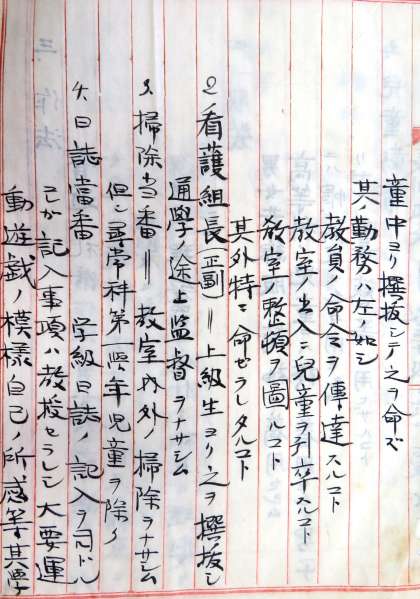 童中ヨリ撰抜シテ之ヲ命ズ
其勤務ハ左ノ如シ
教員ノ命令ヲ傳達スルコト
教室ノ出入ニ児童ヲ引卒スルコト
教室ノ整頓ヲ圖ルコト
其外特ニ命ゼラレタルコト
2 看護組長(正副)=上級生ヨリ之ヲ撰抜シ
通學ノ途上監督ヲナサシム
3、掃除当番=教室内外ノ掃除ヲナサシム
但シ尋常科第一二年児童ヲ除ク
4、日誌當番 学級日誌ノ記入ヲ司ドル
之が記入事項ハ教授セラレシ大要運
動遊戯ノ模様自己ノ所感等其學